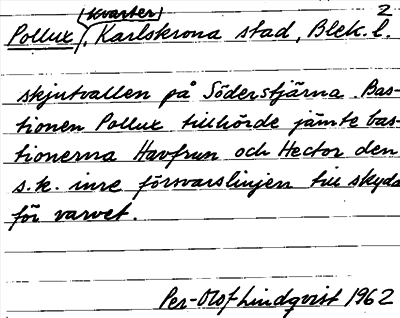 2
(kvarter)
Pollux, Karlskrona stad, Blek. l.
skjutvallen på Söderstjärna. Bas-
tionen Pollux tillhörde jämte bas-
tionerna Havfrun och Hector den
s.k. inre försvarslinjen till skydd
för varvet.
Per-Olof Lindqvist 1962